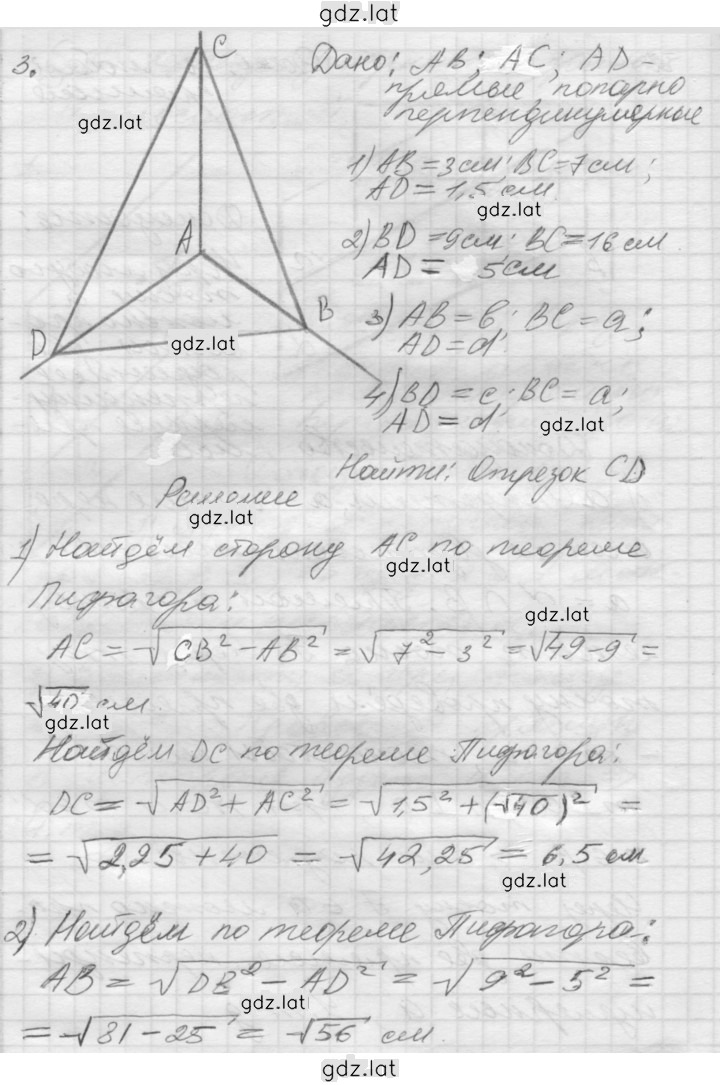 gdz.lat
3.
C
Дано: AB; AC; AD -
прямые попарно
перпендикулярные
gdz.lat
1) AB = 3см; BC = 7см;
AD = 1,5 см.
gdz.lat
2) BD = 9см; BC = 16 см.
AD = 5см
A
B
D
gdz.lat
3) AB = b; BC = a;
AD = d.
4) BD = c; BC = a;
AD = d.
gdz.lat
Найти: Отрезок CD
Решение
gdz.lat
1) Найдём сторону AC по теореме
gdz.lat
Пифагора:
gdz.lat
AC = √CB² - AB² = √7² - 3² = √49 - 9 =
√40 см.
gdz.lat
Найдём DC по теореме Пифагора:
DC = √AD² + AC² = √1,5² + (√40)² =
= √2,25 + 40 = √42,25 = 6,5 см
gdz.lat
2) Найдём по теореме Пифагора:
AB = √DB² - AD² = √9² - 5² =
gdz.lat
= √81 - 25 = √56 см.
gdz.lat